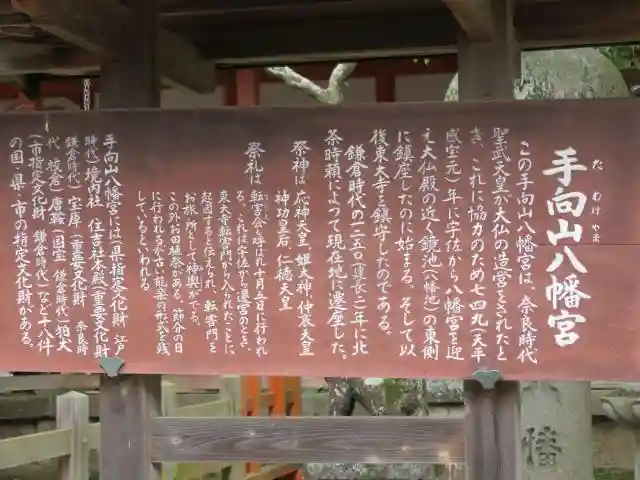 たむけやま
手向山八幡宮
この手向山八幡宮は、奈良時代
聖武天皇が大仏の造営をされたと
き、これに協力のため七四九(天平
感宝元)年に宇佐から八幡宮を迎
え大仏殿の近く鏡池(八幡池)の東側
に鎮座したのに始まる。そして以
後東大寺を鎮守したのである。
鎌倉時代の一二五〇(建長二)年に北
条時頼によって現在地に遷座した。
祭神は 応神天皇、姫大神、仲哀天皇
神功皇后、仁徳天皇
祭礼は 転害会と呼ばれ十月五日に行われ
る。これは宇佐から遷宮のとき、
東大寺転害門から入られたことに
起因すると伝えられ、転害門を
お旅所として神輿がでる。
この外お田植祭がある。節分の日
に行われるが古い能楽の形式を残
しているといわれる。
手向山八幡宮には(県指定文化財 江戸
時代)境内社 住吉社本殿(重要文化財
鎌倉時代)宝庫(重要文化財 奈良時
代 校倉)唐鞍(国宝 鎌倉時代)狛犬
(市指定文化財 鎌倉時代)など十八件
の国・県・市の指定文化財がある。
幡